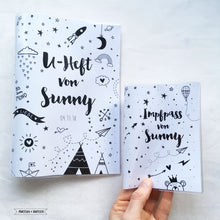 U-Heft
von
Sunny
Impfpass
von
Sunny